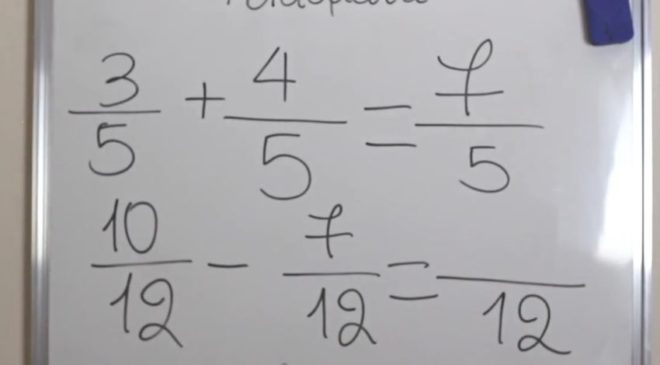 3/5 + 4/5 = 7/5
10/12 - 7/12 = /12